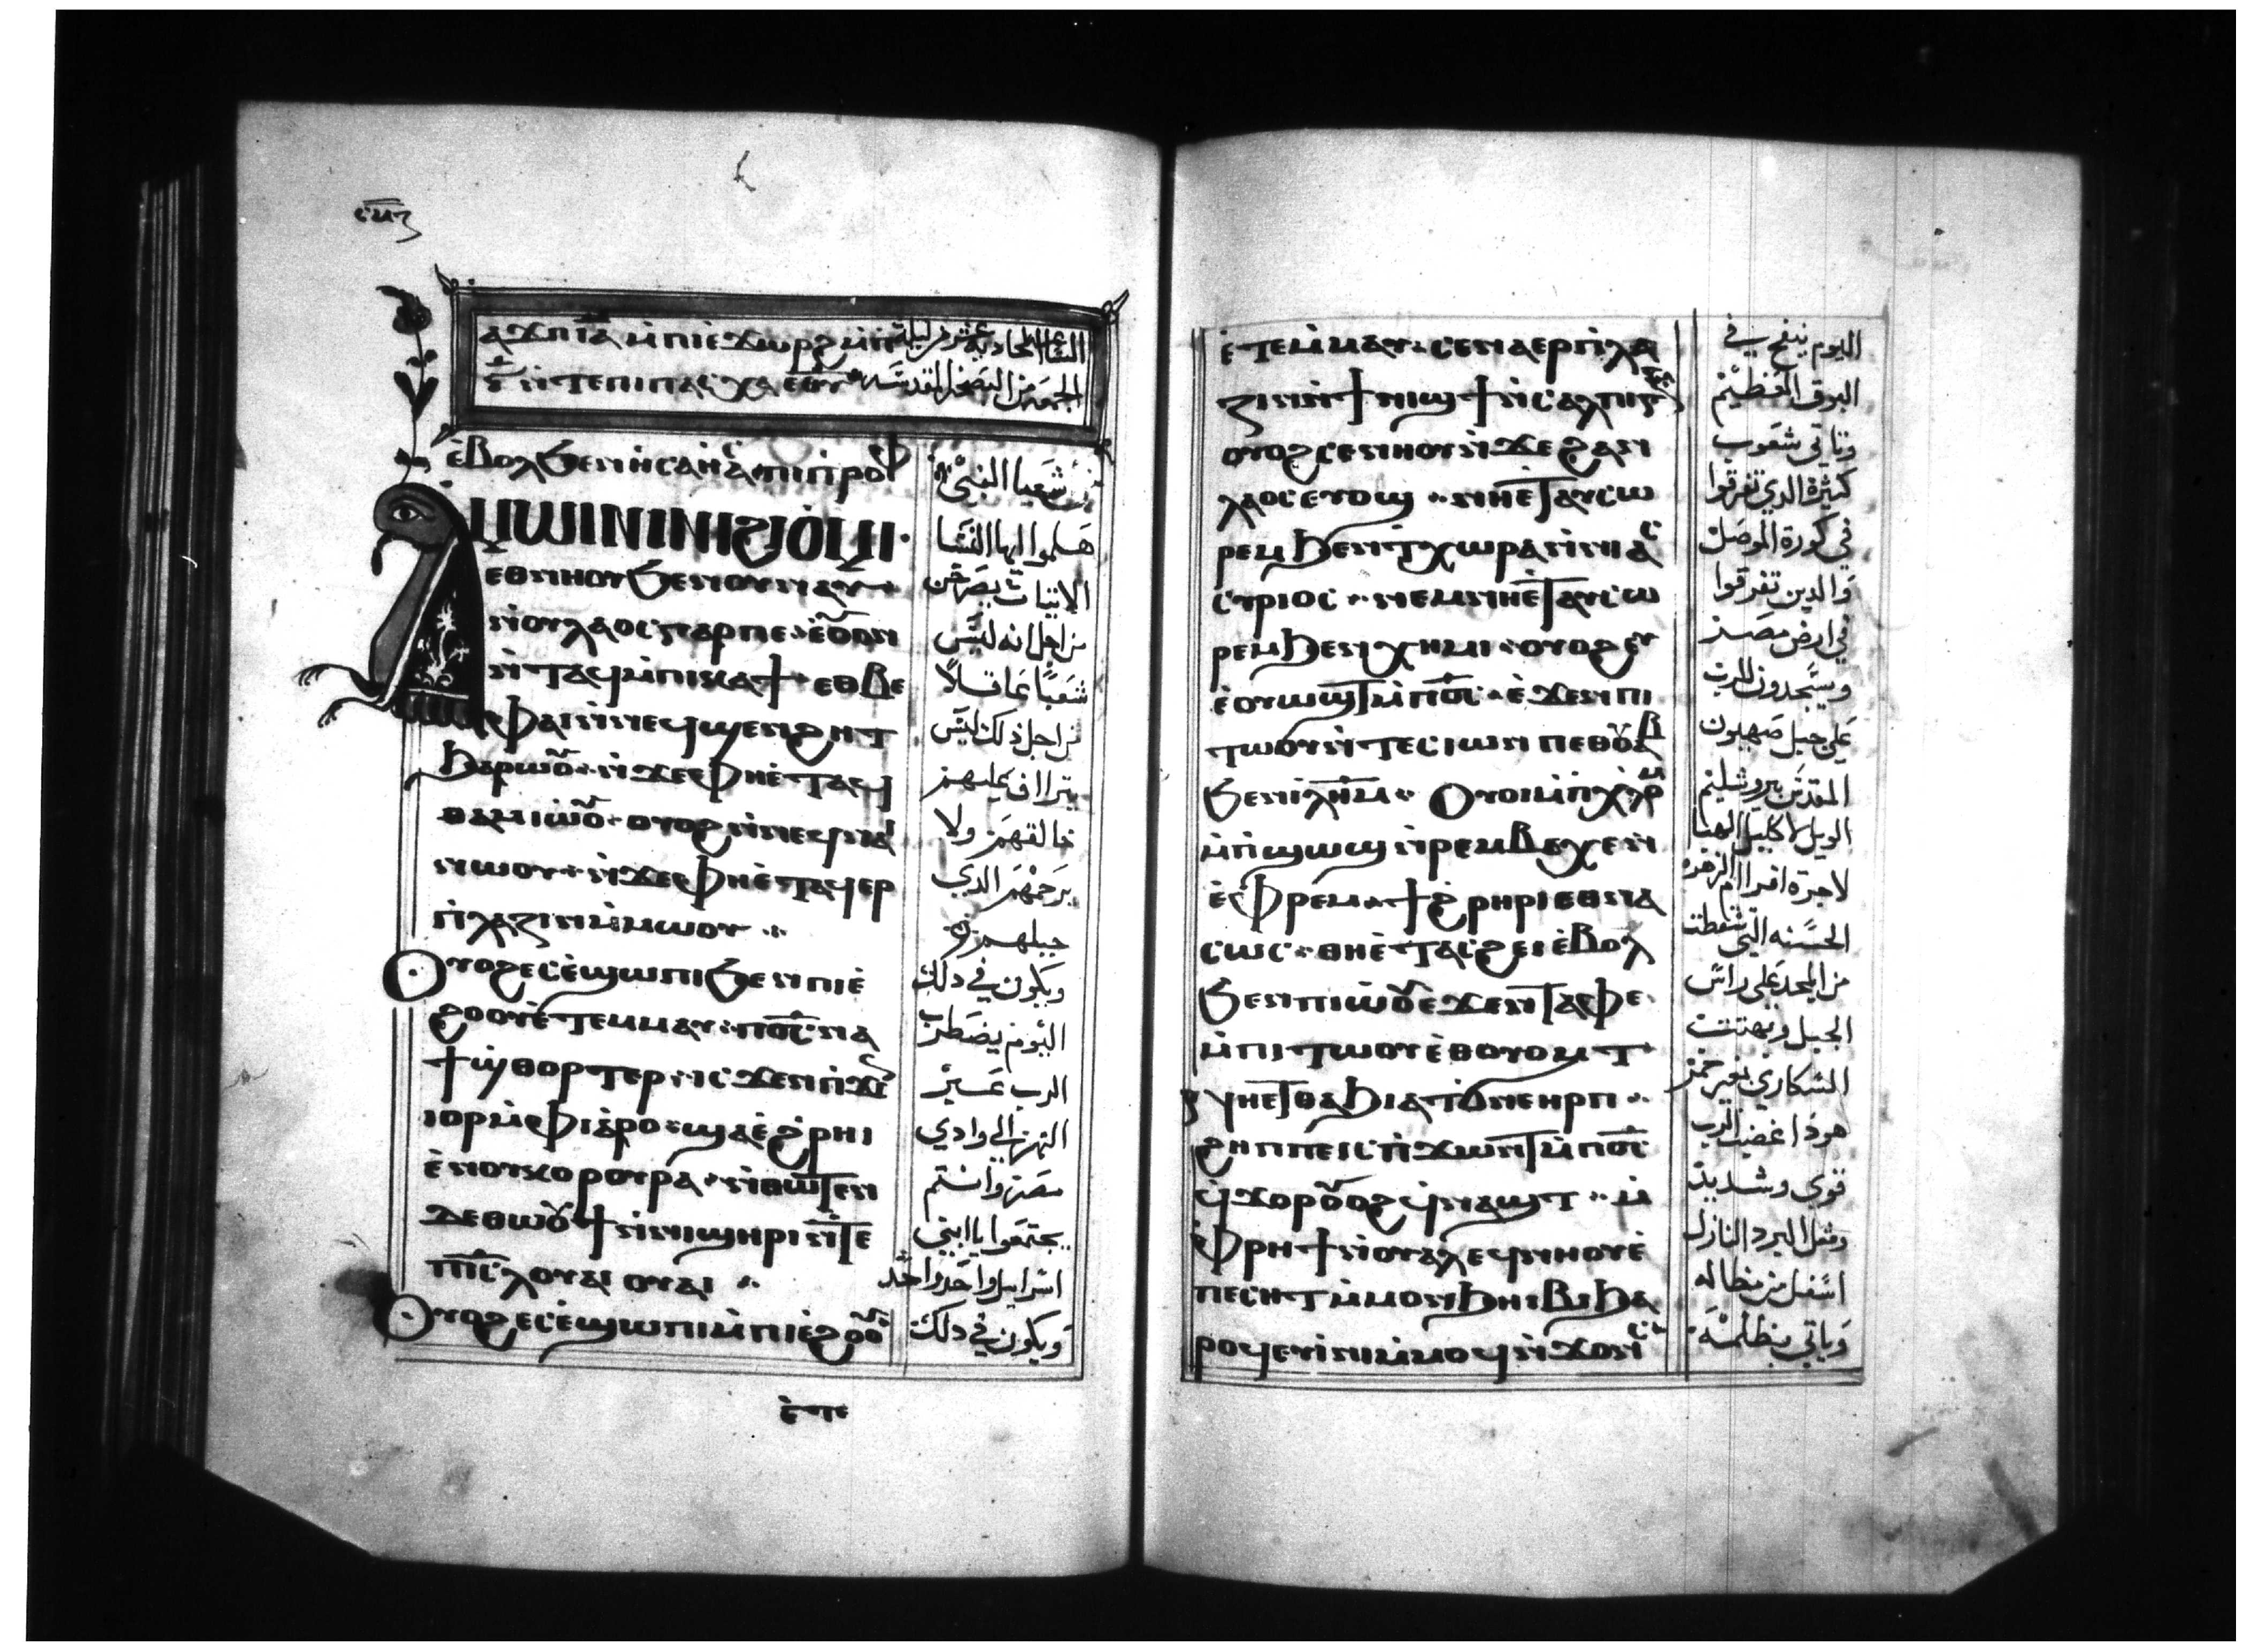 ⲥⲙⲍ
ⲁϫⲡ ⲓⲁ ⲙ̀ⲡⲓⲉ̀ϫⲱⲣϩ ⲙ̀ⲡ
ⲋ̅ ⲛ̀ⲧⲉ ⲡⲓⲡⲁⲥⲭⲁ ⲉⲑⲩ
الساعة الحادية عشر من ليلة
الجمعة من البصخة المقدسة
ⲉ̀ⲃⲟⲗϧⲉⲛ ⲏⲥⲁⲏⲁⲥ ⲡⲓⲡⲣⲟⲫ
ⲁⲙⲱⲓⲛⲓ ⲛⲓϩⲓⲟ̀ⲙⲓ
ⲉⲑⲛⲏⲟⲩ ϧⲉⲛ ⲟⲩⲛⲁⲩ
ⲛ̀ⲟⲩⲗⲁⲟⲥ ⲅⲁⲣ ⲡⲉ ⲉ̀ⲟⲩⲟⲛ
ⲛ̀ⲧⲁϥ ⲙ̀ⲡⲓⲕⲁϯ ⲉⲑⲃⲉ
ⲫⲁⲓ ⲛ̀ⲛⲉϥϣⲉⲛϩⲏⲧ
ϧⲁⲣⲱⲟⲩ ⲛ̀ϫⲉ ⲫⲏⲉ̀ⲧⲁϥ
ⲑⲁⲙⲓⲱ̀ⲟⲩ ⲟⲩⲟϩ ⲛ̀ⲛⲉϥⲛⲁ
ⲛⲱⲟⲩ ⲛ̀ϫⲉ ⲫⲏⲉ̀ⲧⲁϥⲉⲣ
ⲡ̀ⲗⲁⲍⲓⲛ ⲙ̀ⲙⲱⲟⲩ
Ⲟⲩⲟϩ ⲉⲥⲉ̀ϣⲱⲡⲓ ϧⲉⲛ ⲡⲓⲉ̀
ϩⲟⲟⲩ ⲉ̀ⲧⲉⲙⲙⲁⲩ ⲡⲟ̅ⲥ̅ ⲛⲁ
ϯϣⲑⲟⲣⲧⲉⲣ ⲓⲥϫⲉⲛ ⲡ̀ϫⲓ
ⲓⲟⲣ ⲙ̀ⲫⲓⲁⲣⲟ ϣⲁⲉ̀ϩⲣⲏⲓ
ⲉ̀ⲛⲟⲩⲕⲟⲣⲟⲩⲣⲁ ⲛ̀ⲑⲱⲧⲉⲛ
ⲇⲉ ⲑⲱⲟⲩϯ ⲛ̀ⲛⲓϣⲏⲣⲓ ⲛ̀ⲧⲉ
ⲡⲓ̅ⲥ̅ⲗ̅ ⲟⲩⲁⲓ ⲟⲩⲁⲓ
Ⲟⲩⲟϩ ⲉⲥⲉ̀ϣⲱⲡⲓ ⲙ̀ⲡⲓⲉ̀ϩⲟⲟⲩ
من شعيا النبي
هلموا ايها النسا
الاتيات بصرهن
من اجل انه ليس
شعبًا بماقلاً
من اجل ذلك ليس
يتراااف عليهم
خالقهم ولا
يرحمهم الذي
جبلهم
ويكون في ذلك
اليوم يضطرب
الرب عسير
النهر الي وادي
مصر وانتم
يجتمعوا يا بني
اسراييل واحدا واحد
ويكون في ذلك
ⲉ̀ⲧⲉ
ⲉ̀ⲧⲉⲙⲙⲁⲩ ⲥⲉⲛⲁⲉⲣⲡ̀ⲗⲁ
ⲍⲓⲛ ⲛ̀ϯⲛⲓϣϯ ⲛ̀ⲥⲁⲗⲡⲓⲅⲅⲟⲥ
ⲟⲩⲟϩ ⲥⲉⲛⲏⲟⲩ ⲛ̀ϫⲉ ϩⲁⲛ
ⲗⲁⲟⲥ ⲉⲩⲟϣ ⲛⲏⲉ̀ⲧⲁⲩⲥⲱ
ⲣⲉⲙ ϧⲉⲛ ⲧ̀ⲭⲱⲣⲁ ⲛ̀ⲛⲓⲁⲥ
ⲥⲩⲣⲓⲟⲥ ⲛⲉⲙ ⲛⲏⲉ̀ⲧⲁⲩⲥⲱ
ⲣⲉⲙ ϧⲉⲛ ⲭⲏⲙⲓ ⲟⲩⲟϩ ⲉⲩ
ⲉ̀ⲟⲩⲱϣⲧ ⲙ̀ⲡⲟ̅ⲥ̅ ⲉ̀ϫⲉⲛ ⲡⲓ
ⲧⲱⲟⲩ ⲛ̀ⲧⲉ ⲥⲓⲱⲛ ⲡⲉⲑⲟⲩⲁⲃ
ϧⲉⲛ ⲓⲗ̅ⲏ̅ⲙ̅ Ⲟⲩⲟⲓ ⲙ̀ⲡⲓⲭⲗⲟⲙ
ⲙ̀ⲡ̀ϣⲱϣ ⲛ̀ⲣⲉⲙⲃⲉⲭⲉ ⲛ̀
ⲉ̀ⲫⲣⲉⲙ ϯϩⲣⲏⲣⲓ ⲉⲑⲛⲁ
ⲥⲱⲥ ⲑⲏⲉ̀ⲧⲁⲥϩⲉⲓ ⲉ̀ⲃⲟⲗ
ϧⲉⲛ ⲡⲓⲱⲟⲩ ⲉ̀ϫⲉⲛ ⲧ̀ⲁⲫⲉ
ⲙ̀ⲡⲓⲧⲱⲟⲩ ⲉ̀ⲑⲟⲩⲟⲙⲧ
ⲛⲏⲉⲧⲑⲁϧⲓ ⲁⲧϭⲛⲉ ⲏⲣⲡ
ϩⲏⲡⲡⲉ ⲓⲥ ⲡ̀ϫⲱⲛⲧ ⲙ̀ⲡⲟ̅ⲥ̅
ϥ̀ϫⲟⲣ ⲟⲩⲟϩ ϥ̀ⲛⲁϣⲧ ⲙ̀
ⲫⲣⲏϯ ⲛ̀ⲟⲩⲁⲗ ⲉϥⲛⲏⲟⲩ ⲉ̀
ⲡⲉⲥⲏⲧ ⲙ̀ⲙⲟⲛ ϧⲏⲓⲃⲓ ϧⲁ
ⲣⲟϥ ⲉⲩⲓ̀ⲛⲓ ⲙ̀ⲙⲟϥ ⲛ̀ϫⲟⲛⲥ
اليوم ينفخ في
البوق العظيم
وتاتي شعوب
كثيرة الذي تفرقوا
في كورة الموصل
والذين تفرقوا
في ارض مصر
ويسجدون للرب
علي جبل صهيون
المقدس بيروشليم
الويل لاكليل الهنا
لاجرة افرام الزهرة
الحسنه التي سقطت
من المجد علي راس
الجبل وبهتت
السكاري بغير خمر
هوذا غضب الرب
قوي وشديد
ومثل البرد النازل
اسفل من مظاله
وياتي بمظلمه